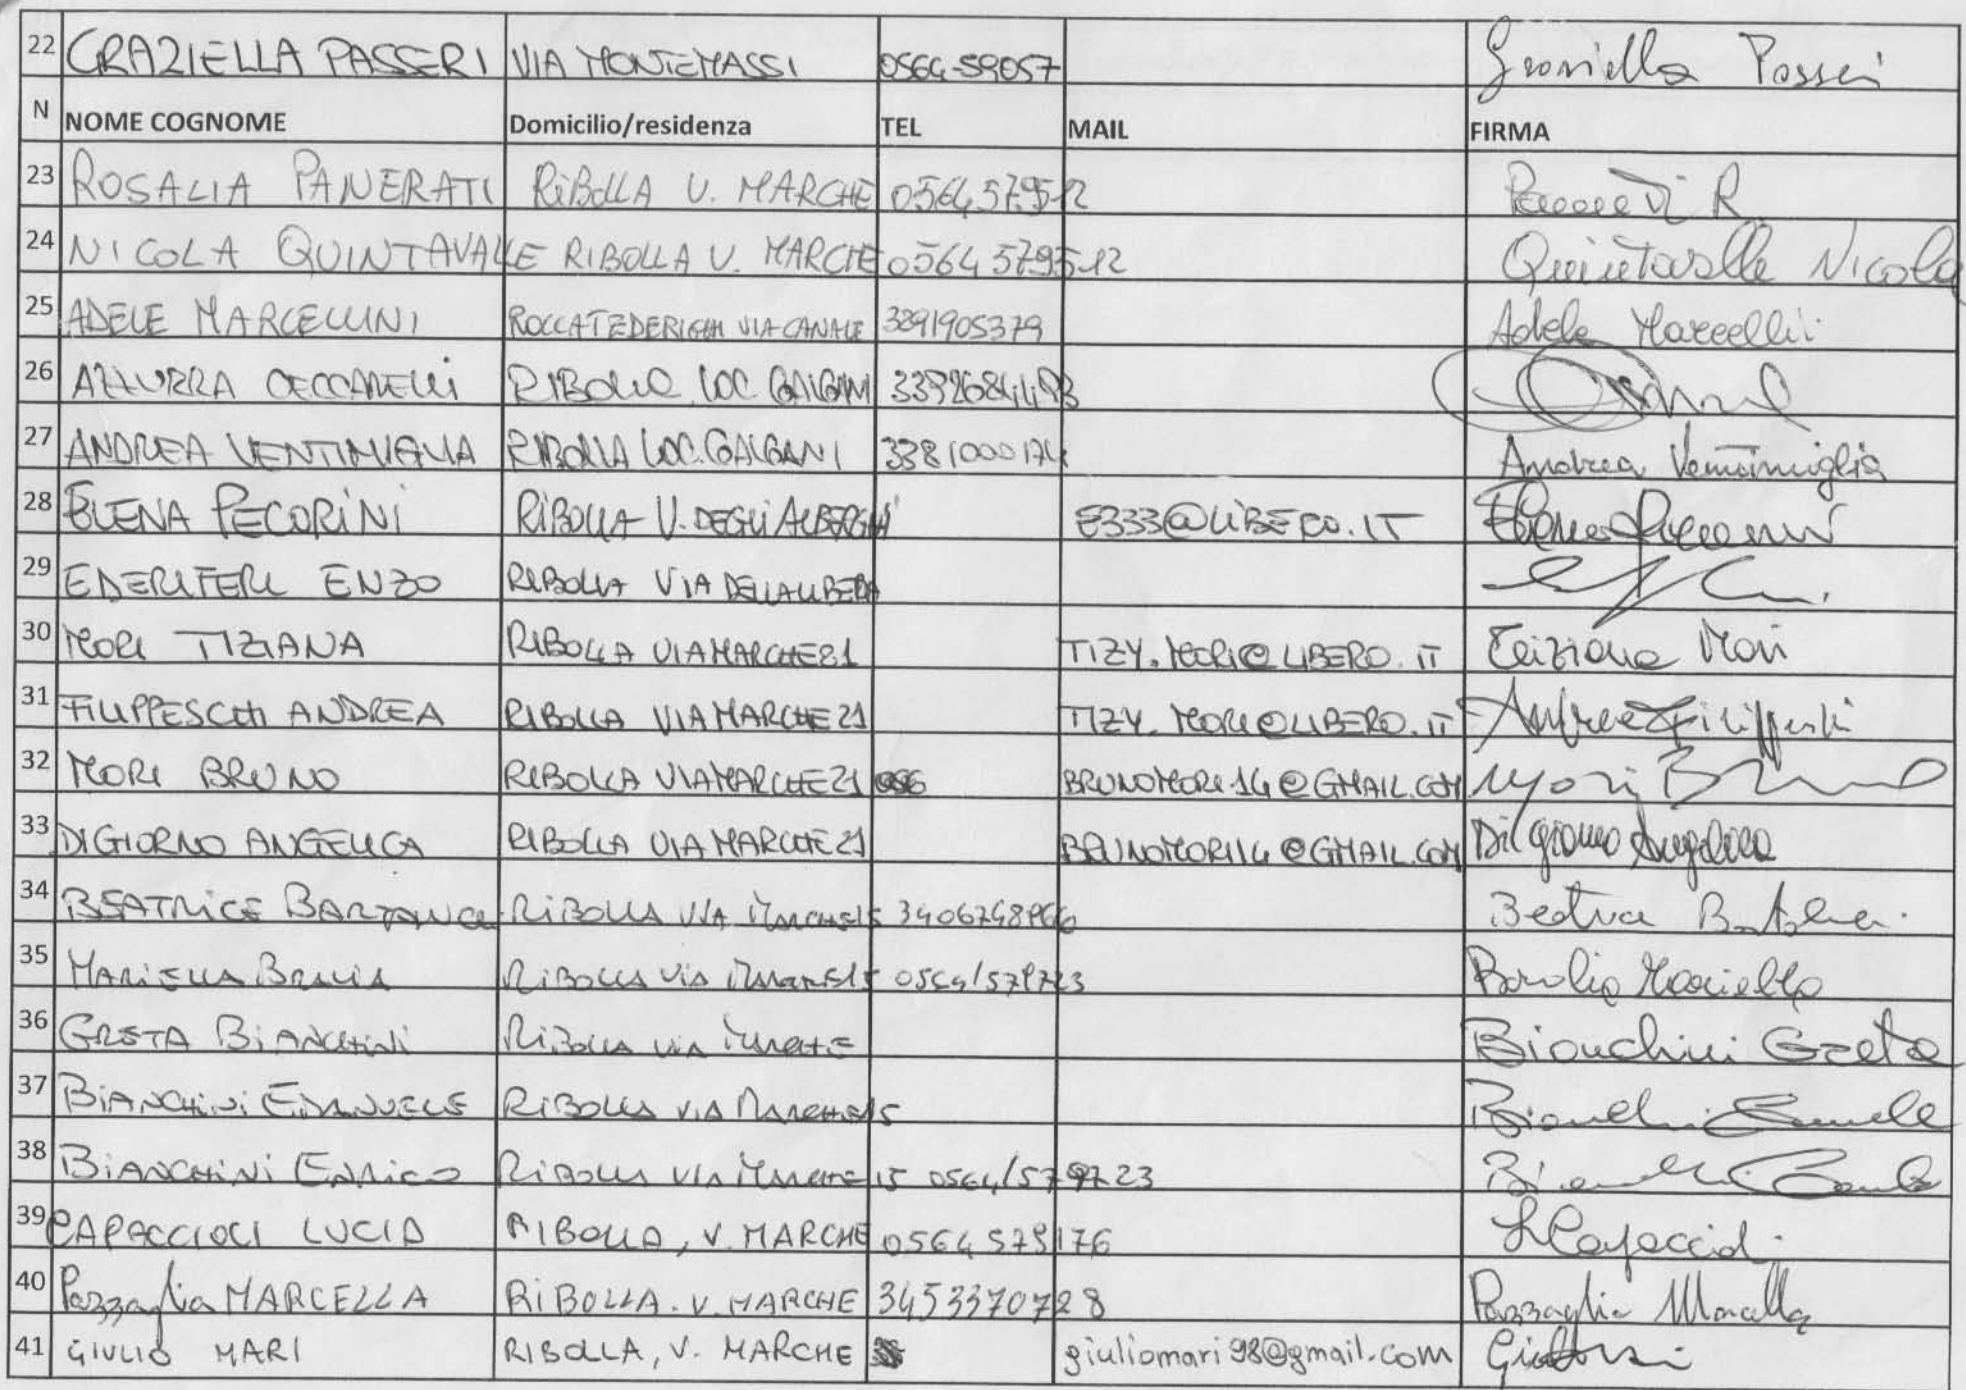 22 GRAZIELLA PASSERI VIA MONTEMASSI 0564-59057 Graziella Passeri
N NOME COGNOME Domicilio/residenza TEL MAIL FIRMA
23 ROSALIA PANERATI RIBOLLA V. MARCHE 0564579512 R
24 NICOLA QUINTAVALLE RIBOLLA V. MARCHE 0564579512 Quintavalle Nicola
25 ADELE MARCELLINI ROCCATEDERIGHI VIA CANALE 3291905379 Adele
26 AZZURRA CECCARELLI RIBOLLA LOC. GALGANI
27 ANDREA VENTIMIGLIA RIBOLLA LOC. GALGANI 3381000174 Andrea Ventimiglia
28 ELENA PECORINI RIBOLLA V. DEGLI ALBERGHI E333@LIBERO.IT
29 EDERIFERI ENZO RIBOLLA VIA
30 MORI TIZIANA RIBOLLA VIA MARCHE 21 TIZY.MORI@LIBERO.IT Tiziana Mori
31 FILIPPESCHI ANDREA RIBOLLA VIA MARCHE 21 TIZY.MORI@LIBERO.IT Andrea Filippeschi
32 MORI BRUNO RIBOLLA VIA MARCHE 21 BRUNOMORI14@GMAIL.COM Mori Bruno
33 DI GIORNO ANGELICA RIBOLLA VIA MARCHE 21 BRUNOMORI14@GMAIL.COM Di Giorno Angelica
34 BEATRICE RIBOLLA VIA MARCHE 15 Beatrice
35 MARIELLA BRALIA RIBOLLA VIA MARCHE 15 0564/579723 Mariella
36 GRETA BIANCHINI RIBOLLA VIA MARCHE Bianchini Greta
37 BIANCHINI EMANUELE RIBOLLA VIA MARCHE 15 Bianchini Emanuele
38 BIANCHINI ENRICO RIBOLLA VIA MARCHE 15 0564/579723 Bianchini
39 CAPACCIOLI LUCIA RIBOLLA, V. MARCHE 0564579176 L Capaccioli
40 Pazzaglia MARCELLA RIBOLLA. V. MARCHE 3453370728 Pazzaglia Marcella
41 GIULIO MARI RIBOLLA, V. MARCHE giuliomari98@gmail.com